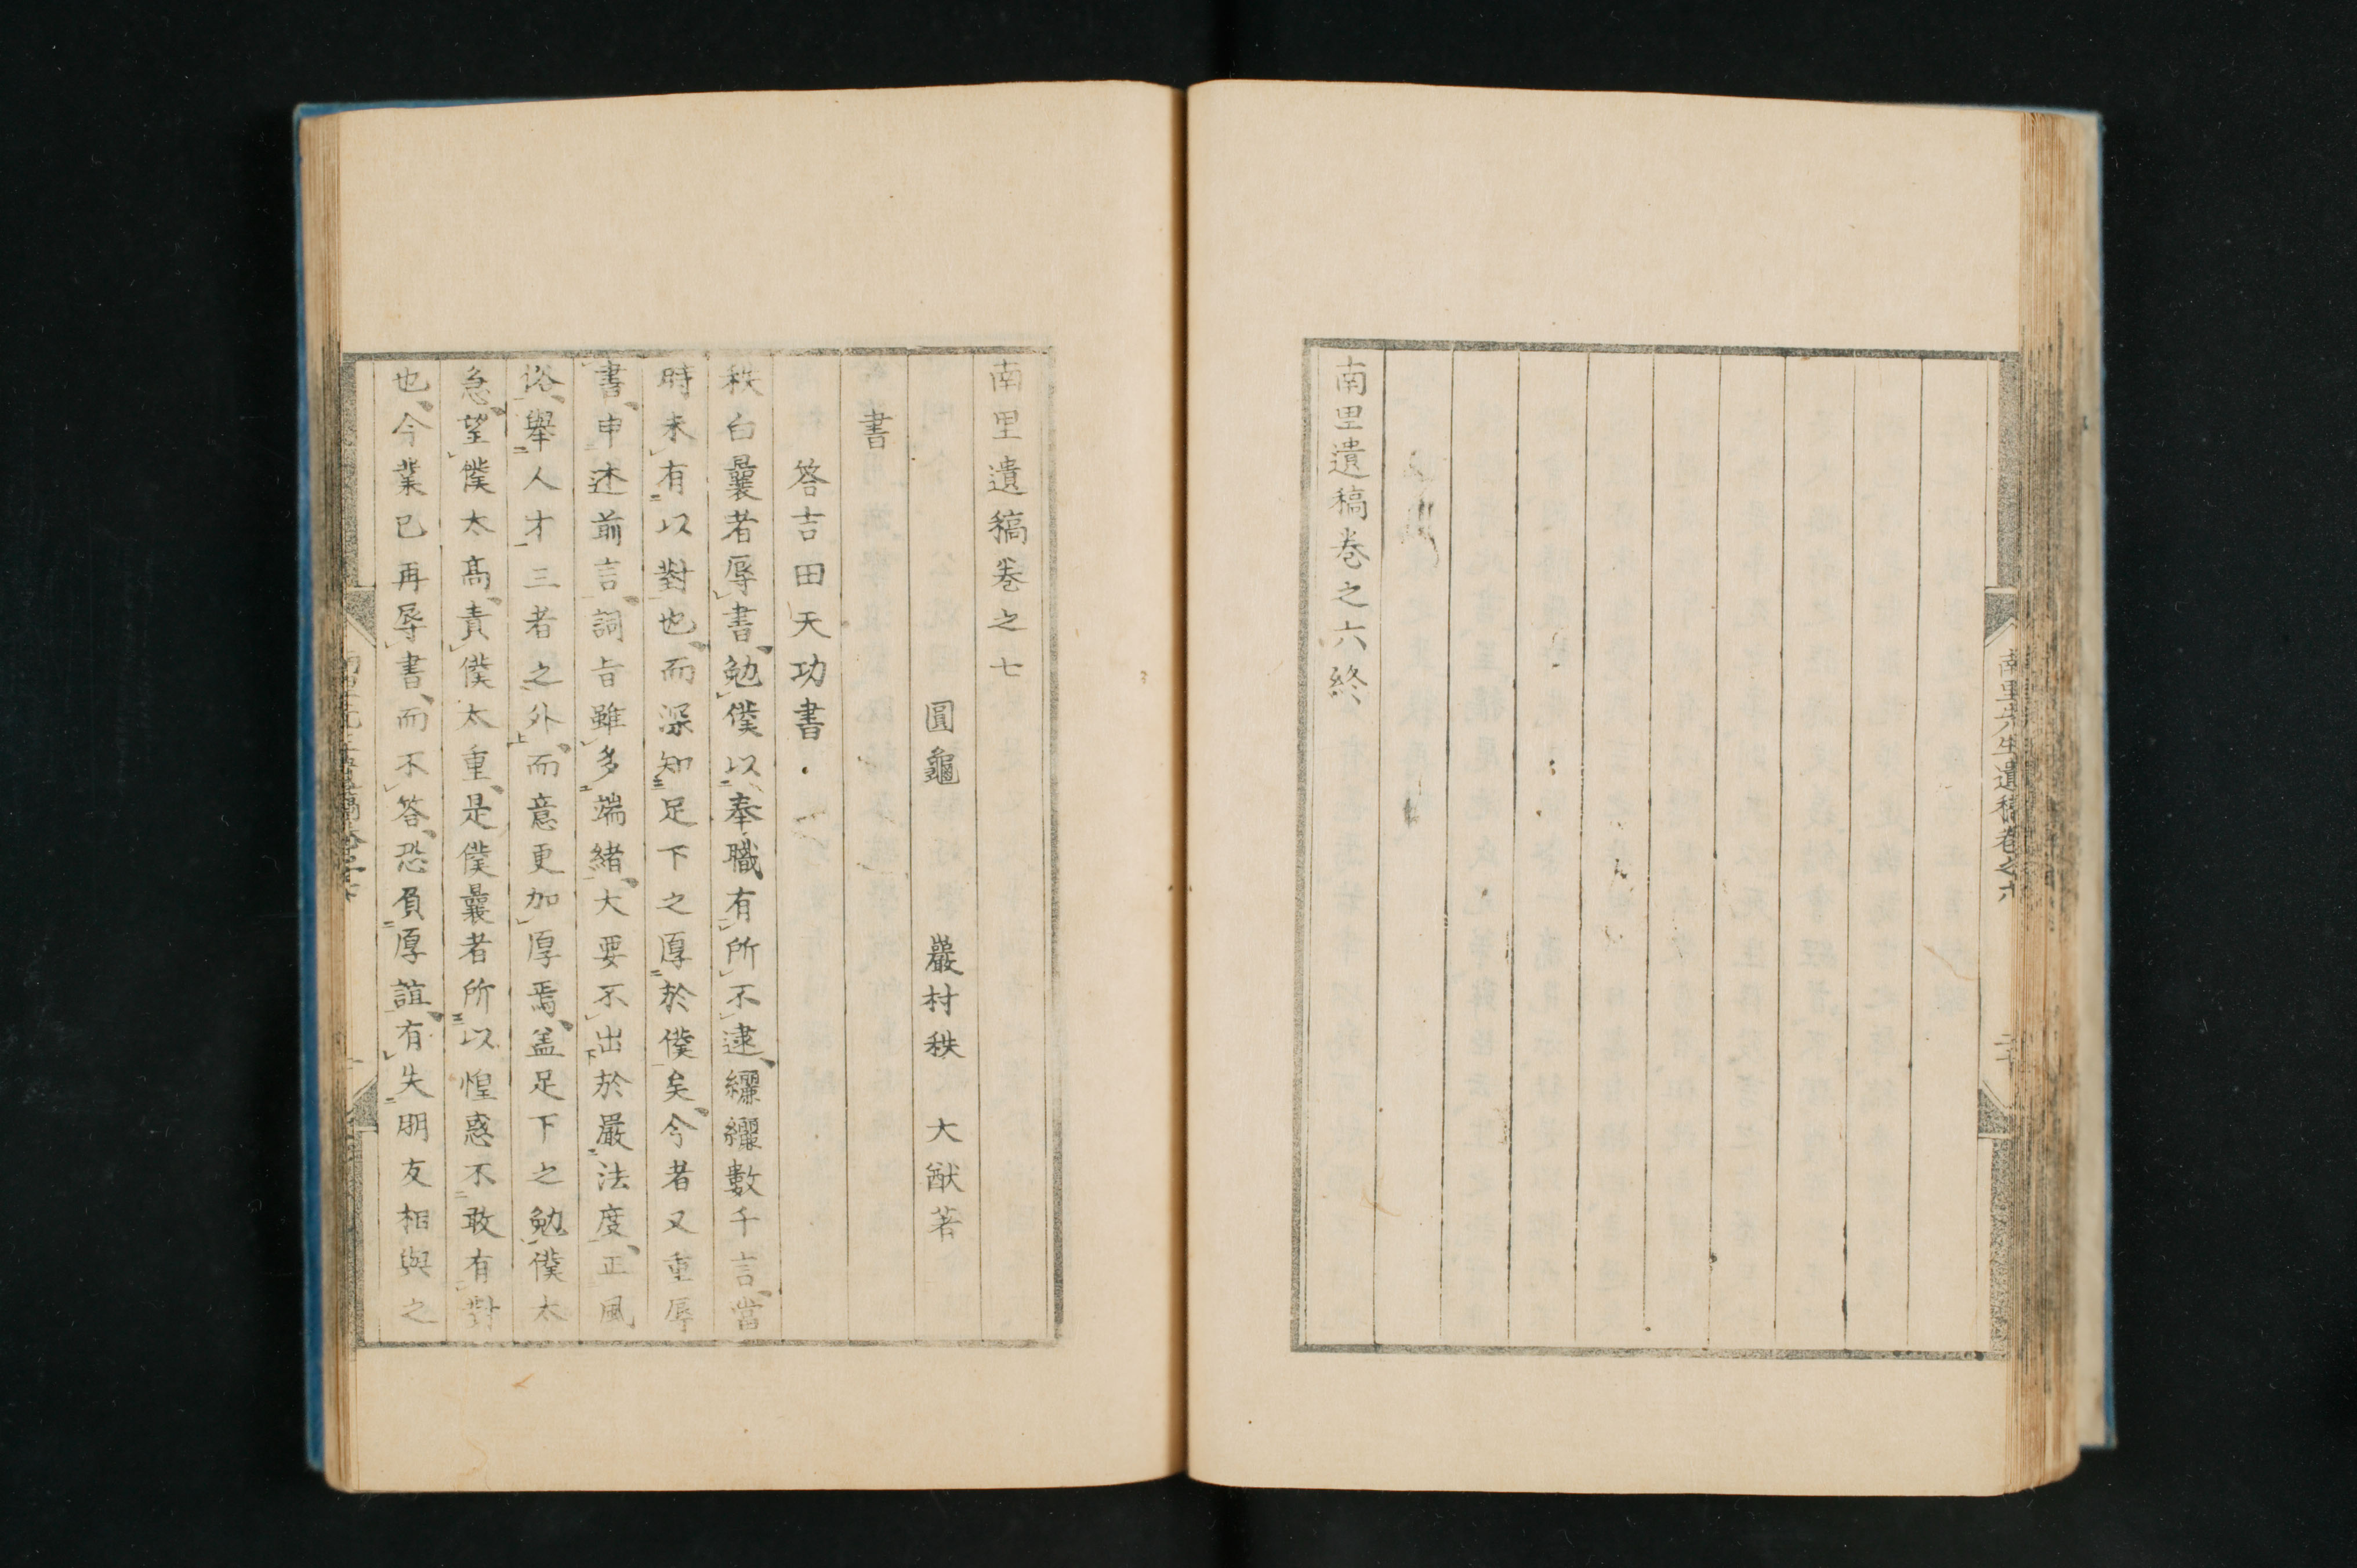 南里遺稿卷之六終
南里先生遺稿卷之六
南里遺稿卷之七
圓龜 巖村秩 大猷著
書
答吉田天功書
秩白曩者辱書、勉僕以奉職有所不逮、纚纚數千言、當
時未有以對也、而深知足下之厚於僕矣、今者又重辱
書、申述前言、詞旨雖多端緒、大要不出於嚴法度、正風
俗、舉人才三者之外、而意更加厚焉、盖足下之勉僕太
急、望僕太高、責僕太重、是僕曩者所以惶惑不敢有對
也、今業已再辱書、而不答、恐負厚誼、有失朋友相與之